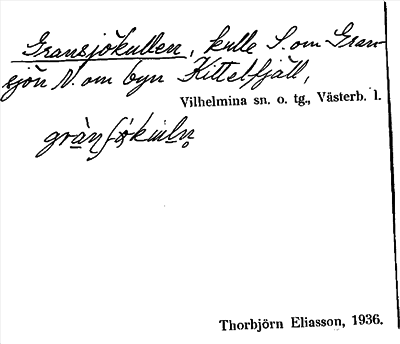 Gransjökullen, kulle S. om Gran-
sjön N. om byn Kittelfjäll,
Vilhelmina sn. o. tg., Västerb. l.
Thorbjörn Eliasson, 1936.